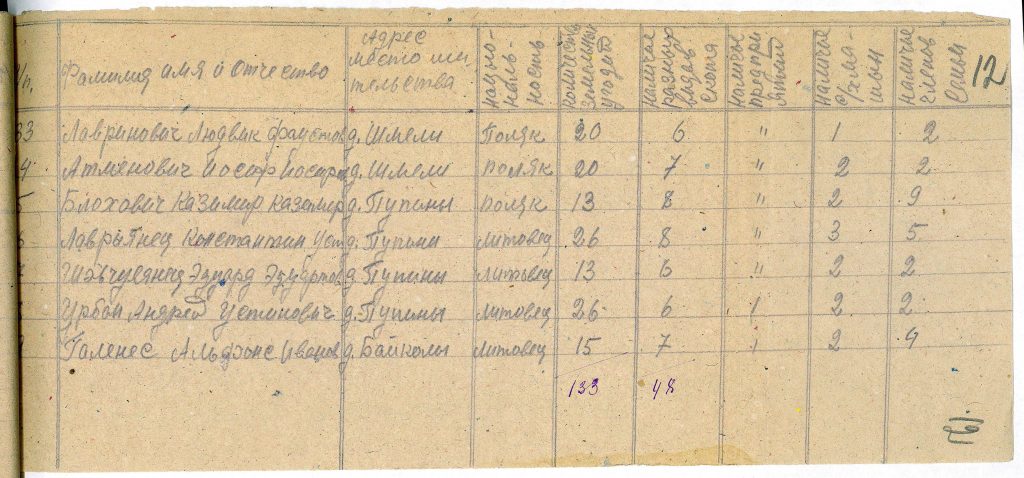 /п. Фамилия имя и отчество Адрес место жительства национальность количеств земельных угодий наличие разных видов скота наличые предприятий наличые с/х машин наличые членов семьи 12
33 Лавринович Людвик Фаустов д. Шмели Поляк 20 6 " 1 2
4 Атменович Иосиф Иосифов д. Шмели Поляк 20 7 " 2 2
5 Блохович Казимир Казимир д. Пупины Поляк 13 8 " 2 9
6 Лаврынец Константин Уст д. Пупыни Литовец 26 8 " 3 5
7 Эдуард Эдуардов д. Пупины Литовец 13 6 " 2 2
Урбан Андрей Устинович д. Пупины Литовец 26 6 1 2 2
Галенес Альфонс Иванов д. Байколы Литовец 15 7 2 4
133 48